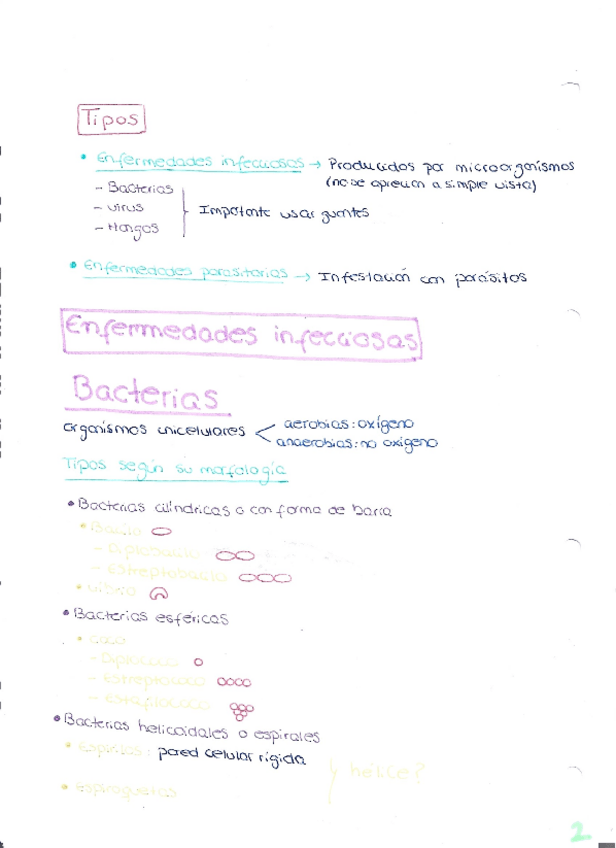 Tipos
• Enfermedades infecciosas → Producidos por microorganismos
(no se aprecian a simple vista)
- Bacterias
- Virus
- Hongos
Impotante usar guantes
• Enfermedades parasitarias → Infestación con parásitos
Enfermedades infecciosas
Bacterias
organismos unicelulares < aerobias: oxígeno
anaerobias: no oxígeno
Tipos según su morfología
• Bacterias cilíndricas o con forma de barra
• Bacilo
- Diplobacilo
- Estreptobacilo
• vibrio
• Bacterias esféricas
• coco
- Diplococo
- Estreptococo
- Estafilococo
• Bacterias helicoidales o espirales
• Espirilos: pared celular rígida
hélice?
• Espiroquetas
2